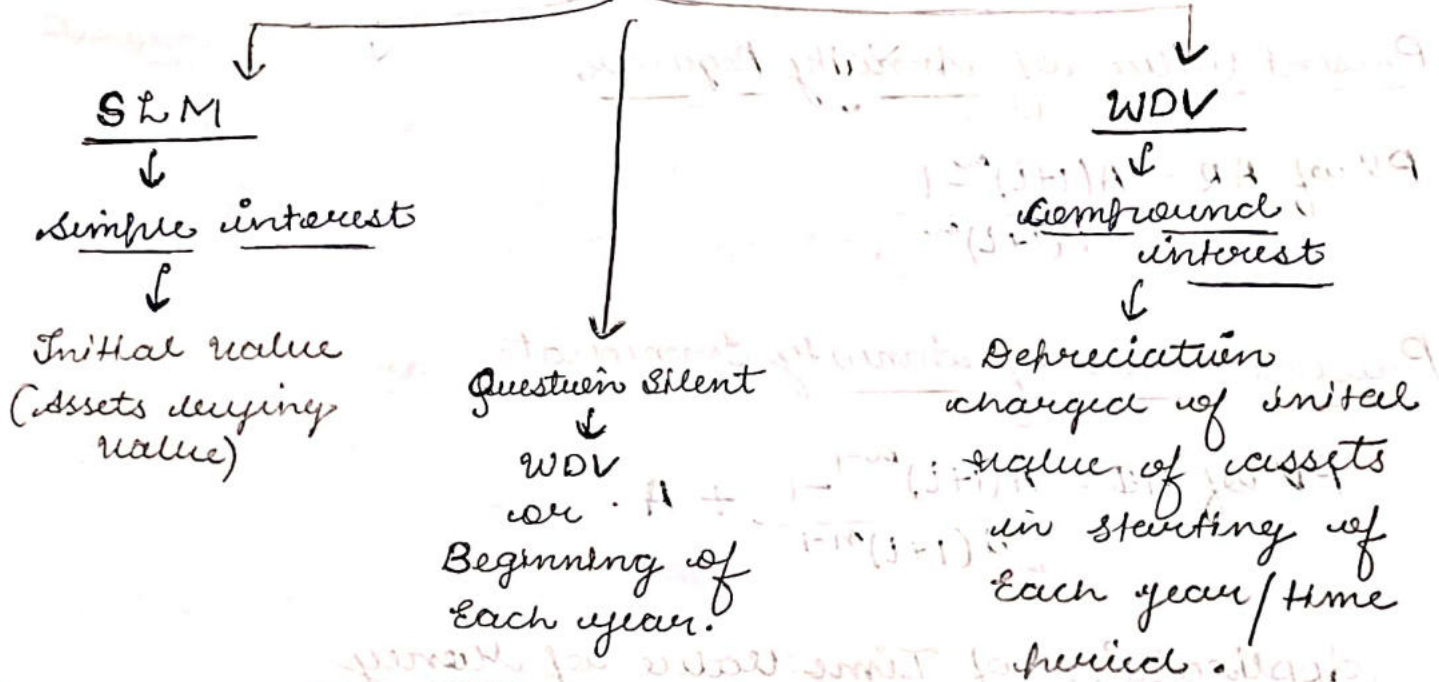 SLM
↓
Simple interest
↓
Initial value
(Assets buying
value)
Question Silent
↓
WDV
or
Beginning of
Each year.
WDV
↓
Compound
interest
↓
Depreciation
charged of inital
value of assets
in starting of
Each year/time
period.